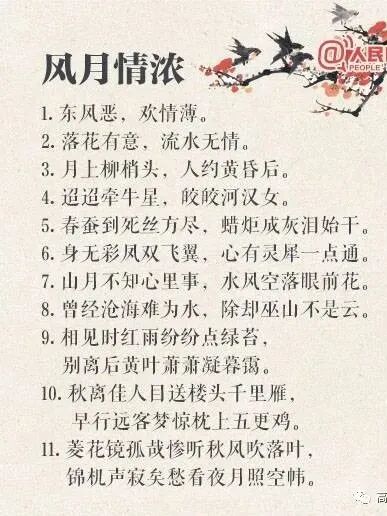 @人民
PEOPLE
风月情浓
1. 东风恶，欢情薄。
2. 落花有意，流水无情。
3. 月上柳梢头，人约黄昏后。
4. 迢迢牵牛星，皎皎河汉女。
5. 春蚕到死丝方尽，蜡炬成灰泪始干。
6. 身无彩凤双飞翼，心有灵犀一点通。
7. 山月不知心里事，水风空落眼前花。
8. 曾经沧海难为水，除却巫山不是云。
9. 相见时红雨纷纷点绿苔，
别离后黄叶萧萧凝暮霭。
10. 秋离佳人目送楼头千里雁，
早行远客梦惊枕上五更鸡。
11. 菱花镜孤哉惨听秋风吹落叶，
锦机声寂矣愁看夜月照空帏。
高